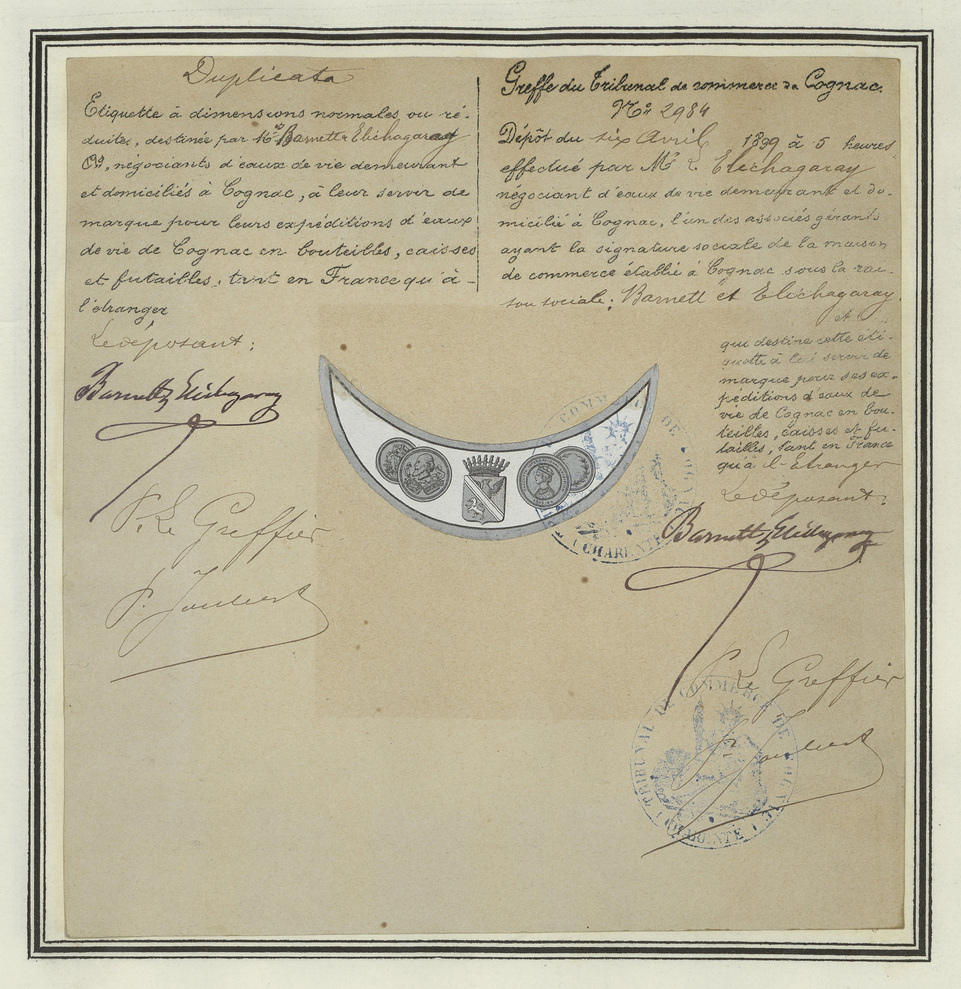 Duplicata
Etiquette à dimensions normales ou ré-
duites, destinée par Mrs Barnett & Elichagaray
& Cie, négociants d'eaux de vie demeurant
et domiciliés à Cognac, à leur servir de
marque pour leurs expéditions d'eaux
de vie de Cognac en bouteilles, caisses
et futailles, tant en France qu'à -
l'étranger
Le déposant :
Barnett & Elichagaray
P. Le Greffier
P. Joubert
Greffe du Tribunal de commerce de Cognac.
No 2984
Dépôt du six Avril 1899 à 5 heures
effectué par Mr L. Elichagaray
négociant d'eaux de vie demeurant et do-
micilié à Cognac, l'un des associés gérants
ayant la signature sociale de la maison
de commerce établie à Cognac sous la rai-
son sociale : Barnett et Elichagaray
et
qui destine cette éti-
quette à lui servir de
marque pour ses ex-
péditions d'eaux de
vie de Cognac en bou-
teilles, caisses et fu-
tailles, tant en France
qu'à l'Etranger
Le déposant :
Barnett & Elichagaray
COMM DE COGNAC
( CHARENTE )
P. Le Greffier
P. Joubert
TRIBUNAL DE COMMERCE DE COGNAC
( CHARENTE )